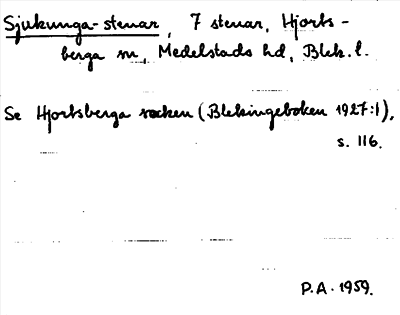 Sjukunga-stenar, 7 stenar, Hjorts-
berga sn, Medelstads hd, Blek. l.
Se Hjortsberga socken (Blekingeboken 1927:1),
s. 116.
P.A. 1959.